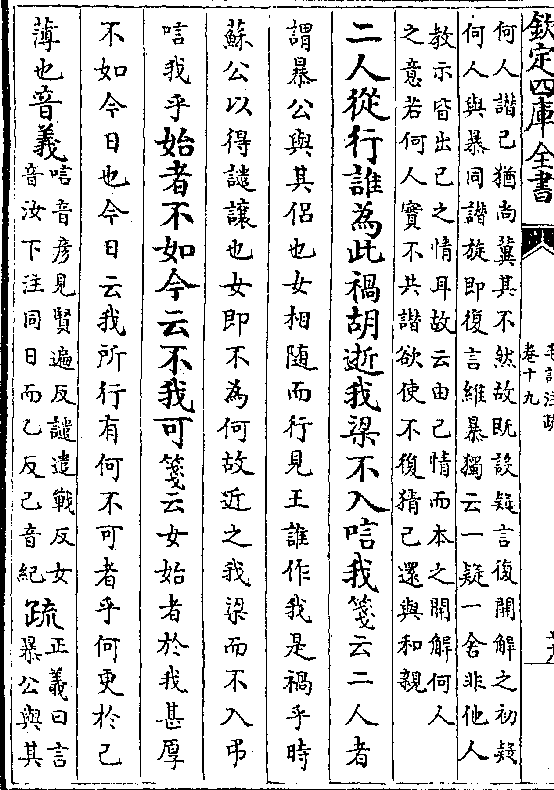 欽定四庫全書
毛詩注疏
卷十九
何人譖己猶尚冀其不然故既設疑言復開解之初疑
何人與暴同譖旋即復言維暴獨云一疑一舍非他人
教示皆出己之情耳故云由己情而本之開解何人
之意若何人實不共譖欲使不復猜己還與和親
二人從行誰為此禍胡逝我梁不入唁我箋云二人者
謂暴公與其侣也女相随而行見王誰作我是禍乎時
蘇公以得譴讓也女即不為何故近之我梁而不入弔
唁我乎始者不如今云不我可箋云女始者於我甚厚
不如今日也今日云我所行有何不可者乎何更於己
薄也音義唁音彦見賢遍反譴遣戰反女
音汝下注同日而乙反己音紀疏正義曰言
暴公與其